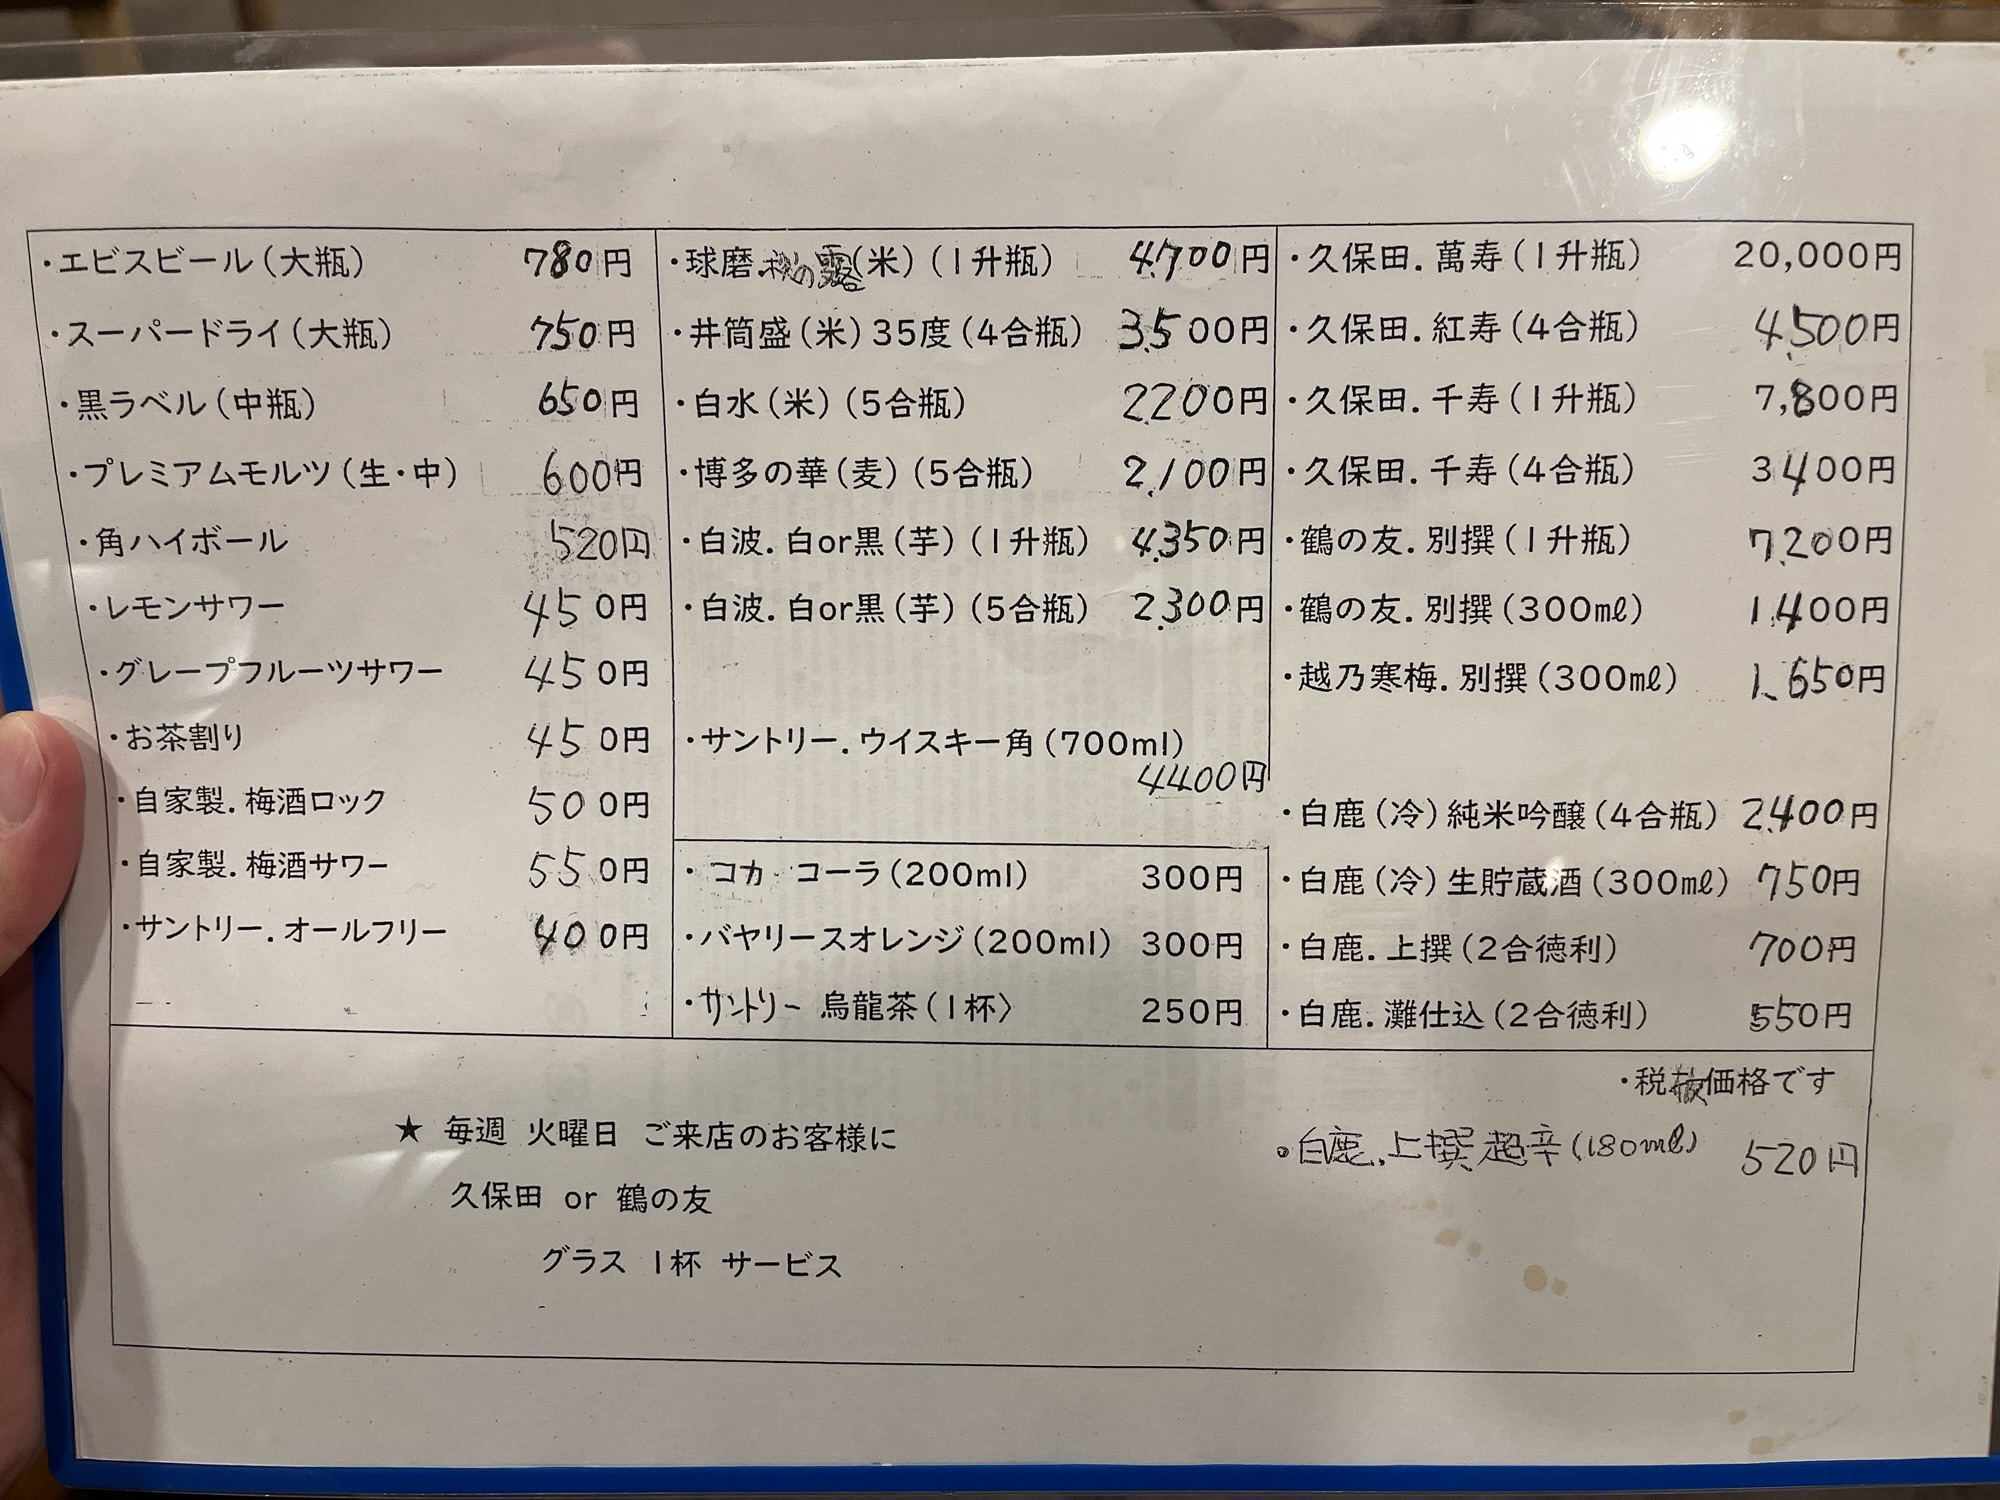 ・エビスビール(大瓶) 780円
・スーパードライ(大瓶) 750円
・黒ラベル(中瓶) 650円
・プレミアムモルツ(生・中) 600円
・角ハイボール 520円
・レモンサワー 450円
・グレープフルーツサワー 450円
・お茶割り 450円
・自家製.梅酒ロック 500円
・自家製.梅酒サワー 550円
・サントリー.オールフリー 400円
・球磨 の露(米)(1升瓶) 4,700円
・井筒盛(米)35度(4合瓶) 3,500円
・白水(米)(5合瓶) 2,200円
・博多の華(麦)(5合瓶) 2,100円
・白波.白or黒(芋)(1升瓶) 4,350円
・白波.白or黒(芋)(5合瓶) 2,300円
・サントリー.ウイスキー角(700ml)
4,400円
・コカ コーラ(200ml) 300円
・バヤリースオレンジ(200ml) 300円
・サントリー 烏龍茶(1杯) 250円
・久保田.萬寿(1升瓶) 20,000円
・久保田.紅寿(4合瓶) 4,500円
・久保田.千寿(1升瓶) 7,800円
・久保田.千寿(4合瓶) 3400円
・鶴の友.別撰(1升瓶) 7,200円
・鶴の友.別撰(300㎖) 1,400円
・越乃寒梅.別撰(300㎖) 1,650円
・白鹿(冷)純米吟醸(4合瓶) 2,400円
・白鹿(冷)生貯蔵酒(300㎖) 750円
・白鹿.上撰(2合徳利) 700円
・白鹿.灘仕込(2合徳利) 550円
・税抜価格です
・白鹿.上撰 超辛(180㎖) 520円
★ 毎週 火曜日 ご来店のお客様に
久保田 or 鶴の友
グラス 1杯 サービス